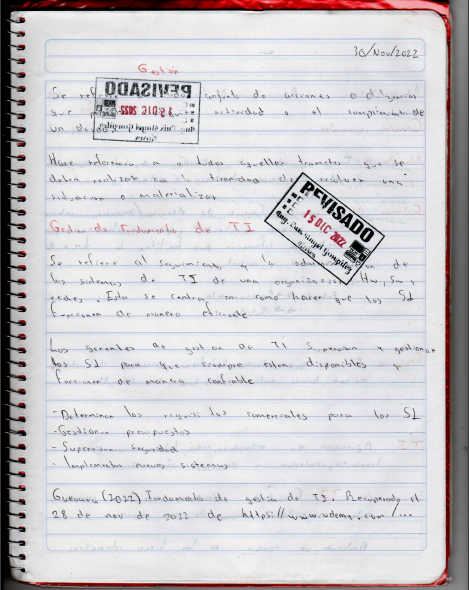 30/Nov/2022
Gestión
Se refiere conjunto de acciones o diligencias
que actividad o el cumplimiento de
un
REVISADO
15 DIC 2022
Hace referencia a todos aquellos tramites que se
debra realizar con la finalidad de resolver una
situacion o materializar
REVISADO
15 DIC 2022
Ing.
Gestion de Fundamentos de TI
Se refiere al seguimiento y la de
los sistemas de TI de una organizacion Hw, Sw,
redes. Esta se centra en como hacer que los SI
funcionen de manera eficiente
Los gerentes de gestion de TI Supervisan y gestionan
los SI para que siempre esten disponibles y
funcionen de manera confiable
-Determinar los requisitos comerciales para los SI
-Gestionar presupuestos
-Supervisar seguridad
-Implementar nuevos sistemas
Guevara (2022) Fundamentos de gestion de TI. Recuperado el
28 de nov de 2022 de https://www.udemy.com/...